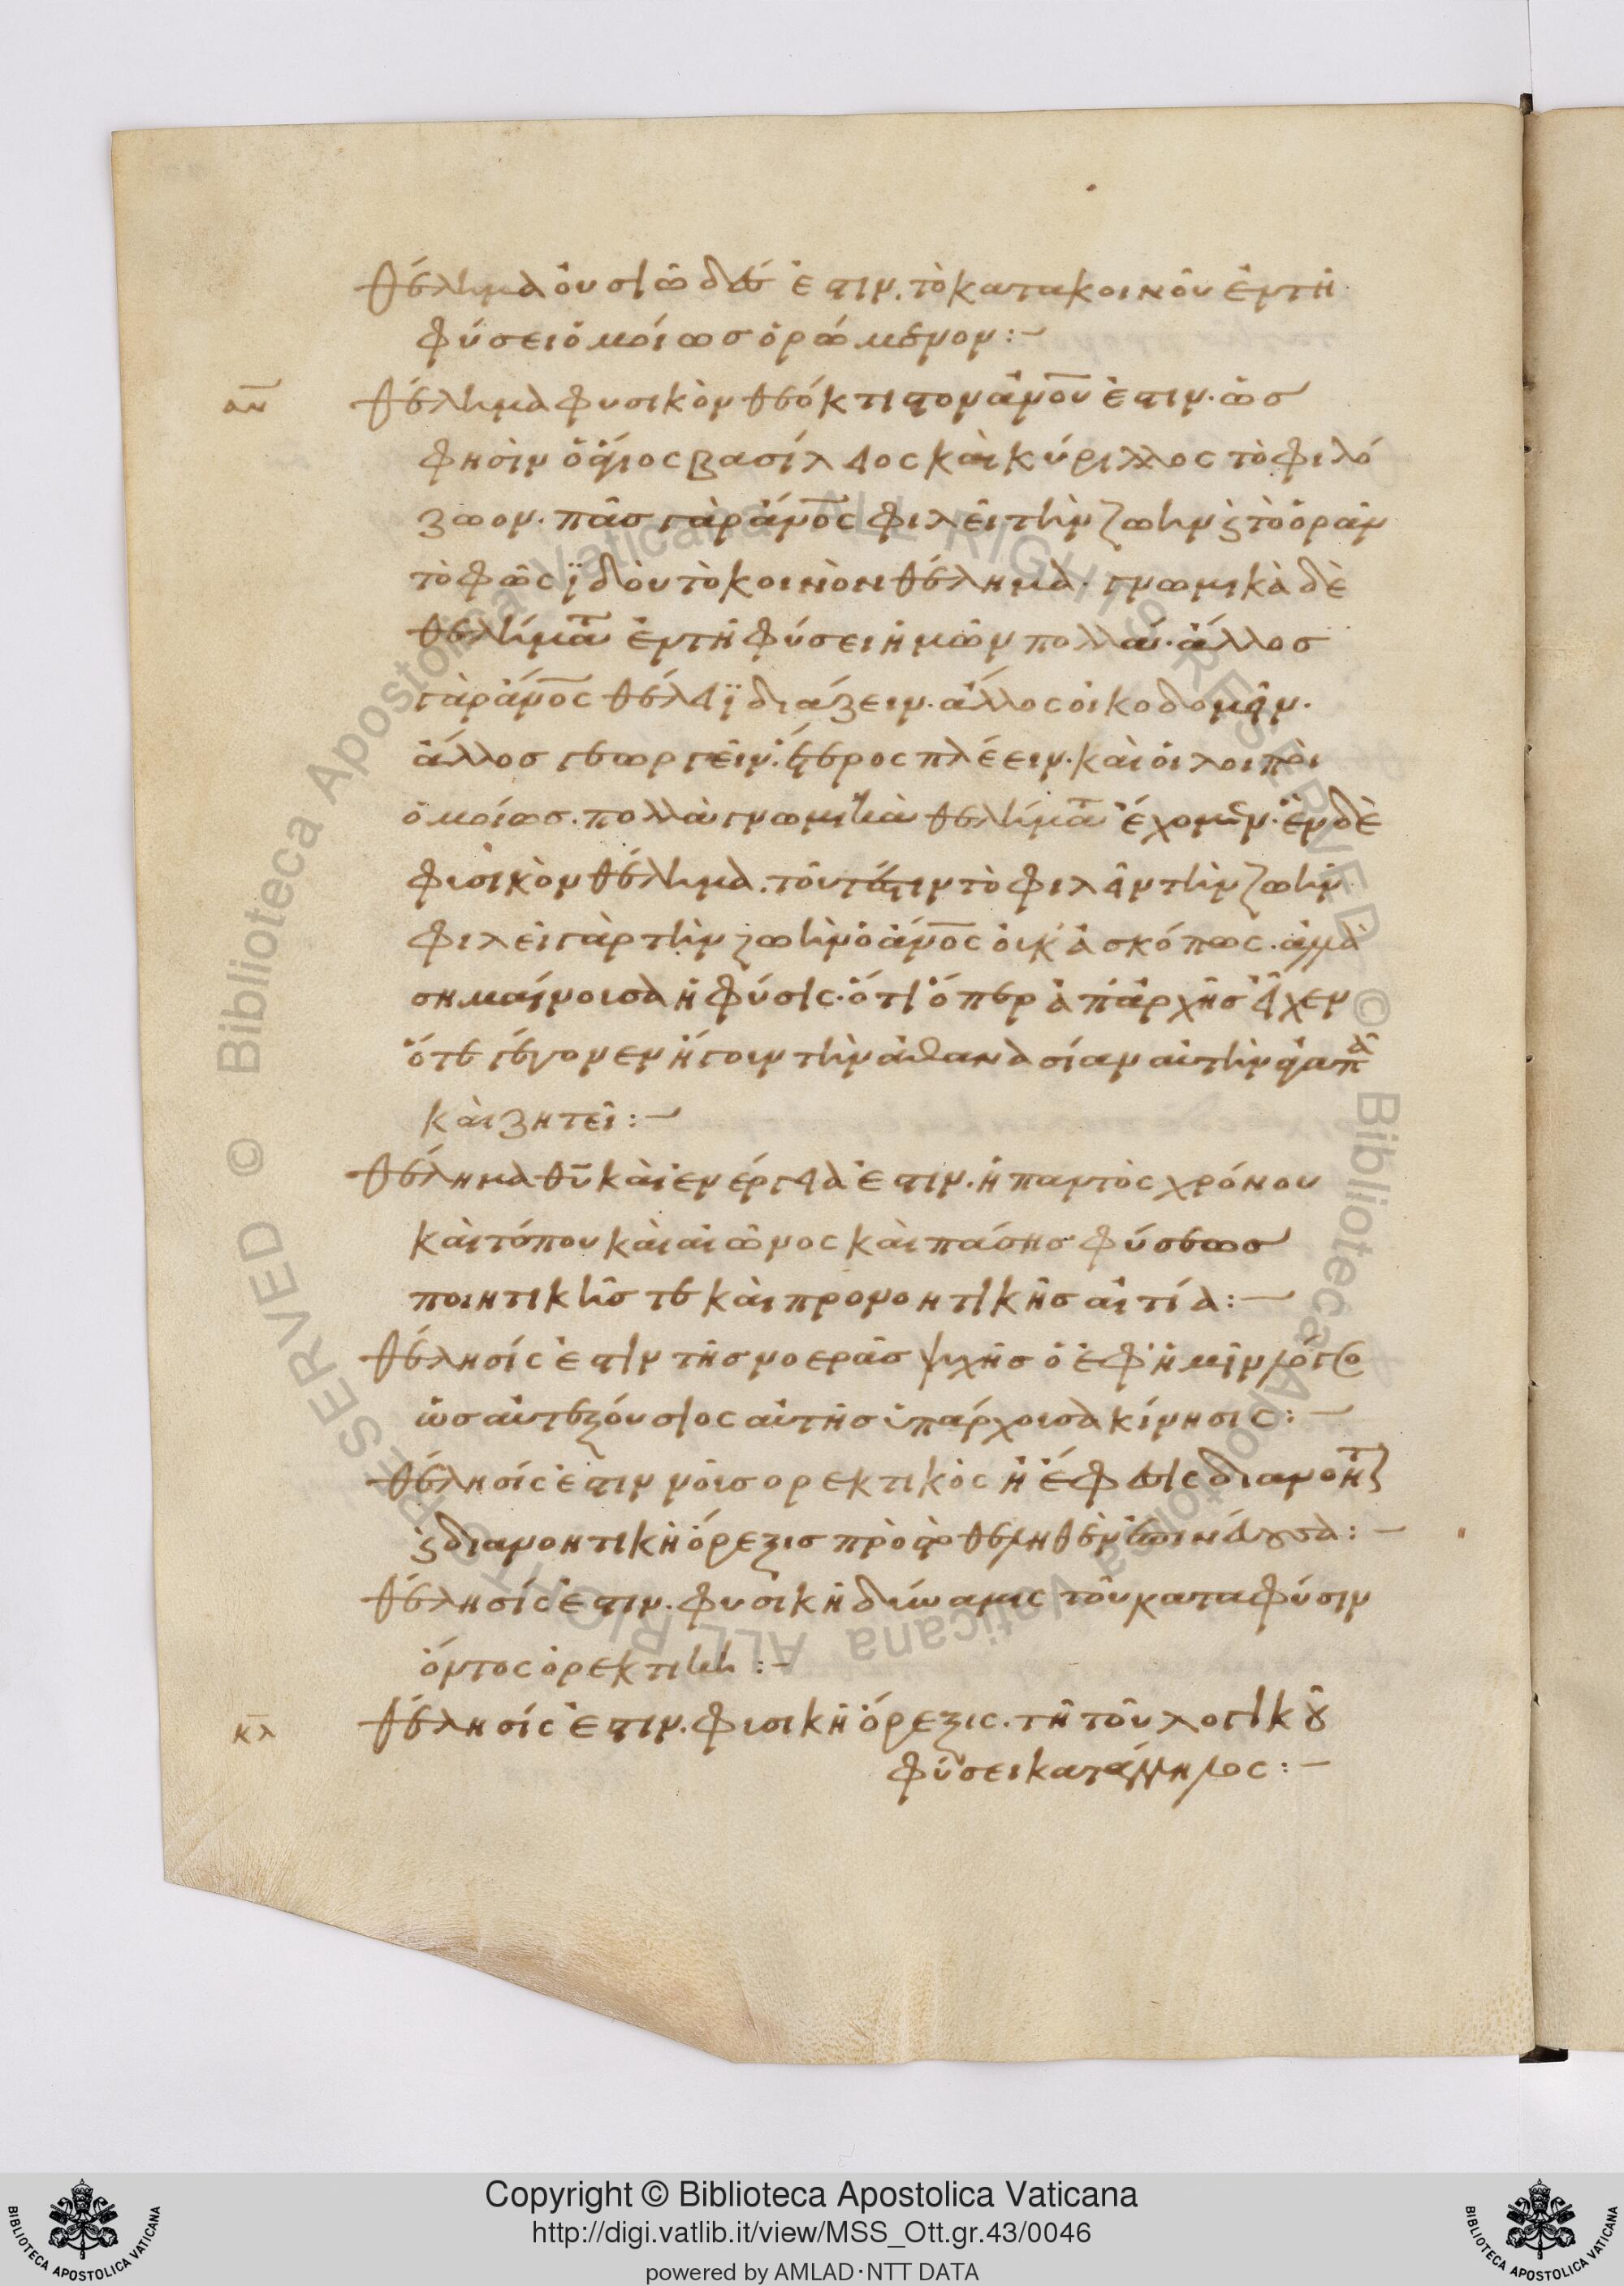 θέλημα οὐσιῶδες ἐστιν. τὸ κατακοινοῦ ἐν τῆ
φύσει ὁμοίωσ ὁρώμενον :~
αν̅
θέλημα φυσικὸν θεόκτιστον ἀν̅ου ἐστιν. ὥσ
φησὶν ὁ ἅγιος βασίλειος καὶ κύριλλος τὸ φιλό
ζωον. πᾶσ γὰρ ἄν̅ος φιλεῖ τὴν ζωὴν ϗ τὸ ὁρᾶν
τὸ φῶς ϊδοὺ τὸ κοινὸν θέλημα. γνωμικὰ δὲ
θελήμα̅τ ἐν τῆ φύσει ἡμῶν πολλά. ἄλλοσ
γὰρ ἄν̅ος θέλει ϊδιάζειν. ἄλλος οἰκοδομεῖν.
ἄλλοσ γεωργεῖν. ἕτερος πλέειν. καὶ οἱ λοιποὶ
ὁμοίωσ. πολλὰ γνωμικὰ θελήμα̅τ ἔχομεν. ἓν δὲ
φυσικὸν θέλημα. τοῦτ' ἔστιν τὸ φιλεῖν τὴν ζωὴν
φιλεῖ γὰρ τὴν ζωὴν ὁ ἄν̅ος οὐκ' ἀσκόπως. ἀλλὰ
σημαίνουσα ἡ φύσις. ὅτι ὅπερ ἀπ' ἀρχῆσ εἶχεν
ὅτε γέγονεν ἤγουν τὴν ἀθανασίαν αὐτὴν ἀγαπᾶ
καὶ ζητεῖ :~
θέλημα θ̅υ καὶ ἐνέργεια ἐστιν. ἡ παντὸς χρόνου
καὶ τόπου καὶ αἰῶνος καὶ πάσησ φύσεωσ
ποιητικῆσ τε καὶ προνοητικῆσ αἰτία :~
θέλησίς ἐστιν τῆσ νοερᾶσ ψυχῆσ ὁ ἐφ' ἡμῖν λόγο
ὡσ αὐτεξούσιος αὐτῆσ ὑπάρχουσα κίνησις :~
θέλησίς ἐστιν νοῦσ ορεκτικὸς ἢ ἔφεσις διανοητ
ϗ διανοητικὴ ὄρεξισ πρὸς τὸ θεληθὲν
θέλησίς ἐστιν. φυσϊκὴ δύναμις τοῦ κατα φύσιν
ὄντος ὀρεκτικὴ :~
κλ̅
θέλησίς ἐστιν. φυσικὴ ὄρεξις. τῆ τοῦ λογικοῦ
φύσει κατάλληλος :~
Copyright © Biblioteca Apostolica Vaticana
http://digi.vatlib.it/view/MSS_Ott.gr.43/0046
powered by AMLAD·NTT DATA